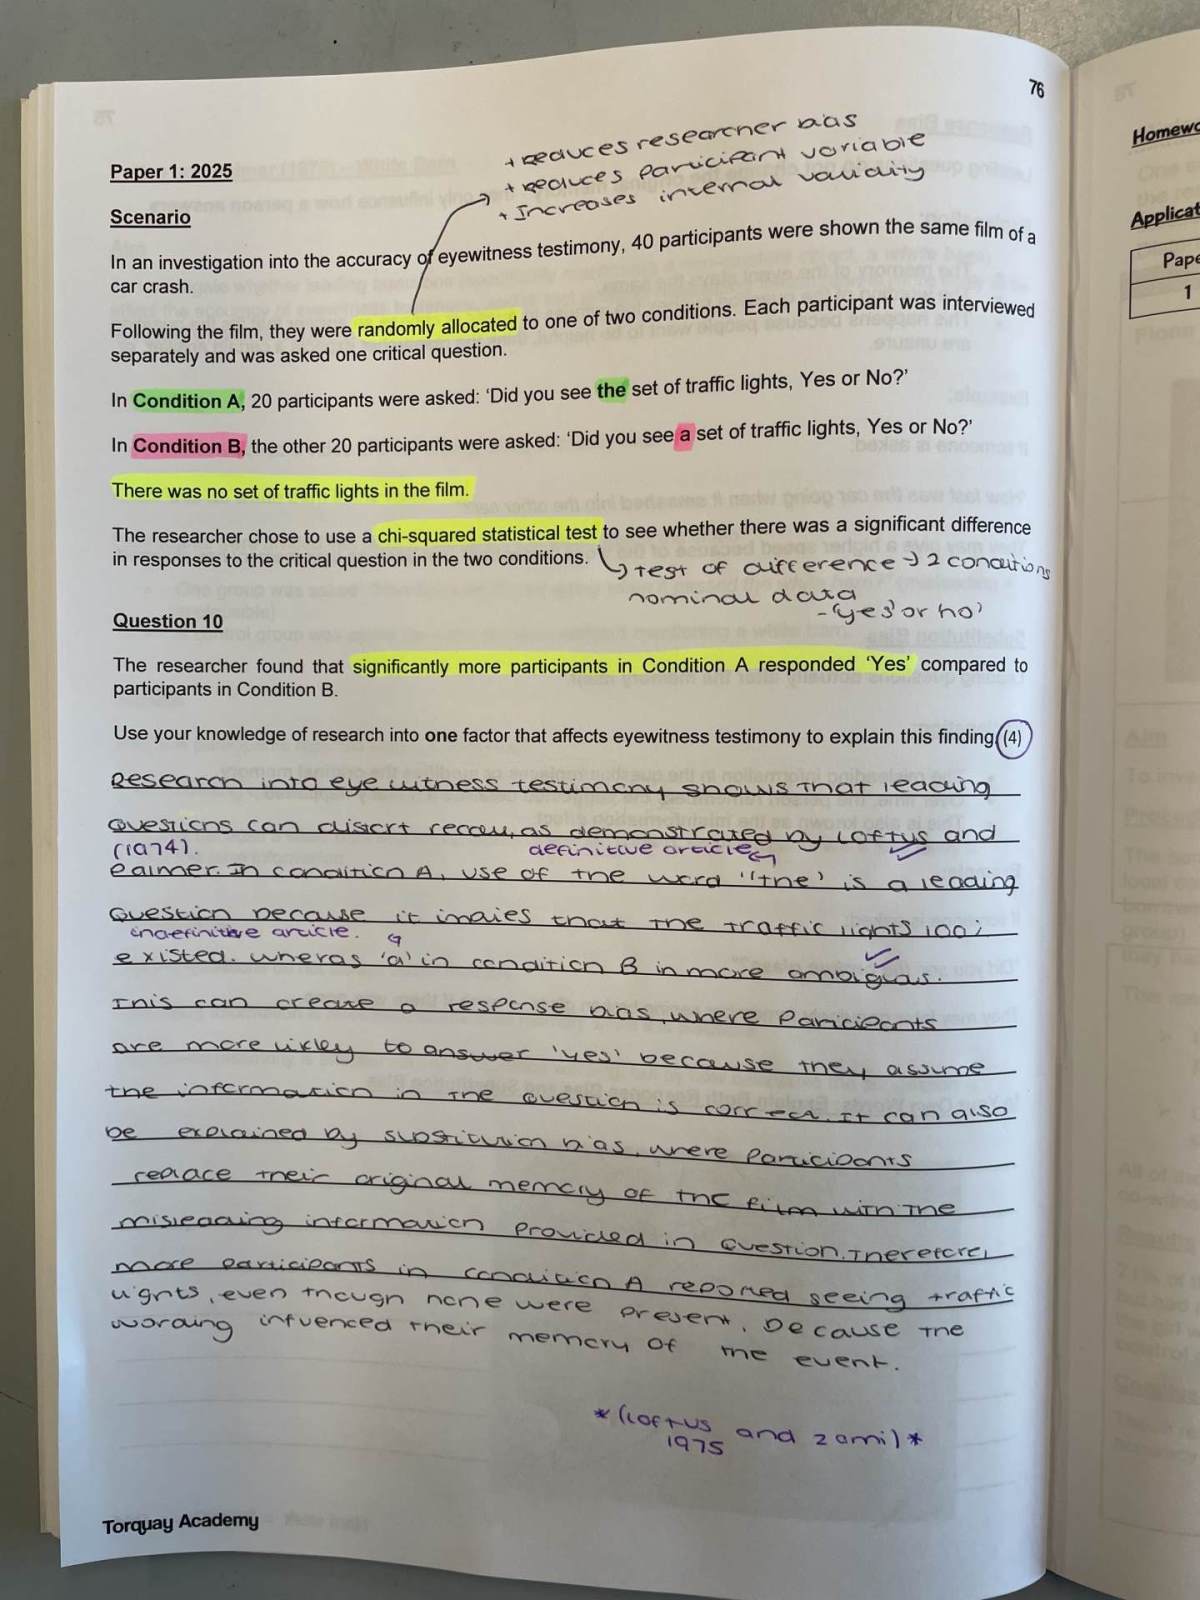 76
Paper 1: 2025
+ reduces researcher bias
+ reduces participant variable
+ Increases internal validity
Scenario
In an investigation into the accuracy of eyewitness testimony, 40 participants were shown the same film of a
car crash.
Following the film, they were randomly allocated to one of two conditions. Each participant was interviewed
separately and was asked one critical question.
In Condition A, 20 participants were asked: ‘Did you see the set of traffic lights, Yes or No?’
In Condition B, the other 20 participants were asked: ‘Did you see a set of traffic lights, Yes or No?’
There was no set of traffic lights in the film.
The researcher chose to use a chi-squared statistical test to see whether there was a significant difference
in responses to the critical question in the two conditions.
↳ test of difference → 2 conditions
nominal data
- 'yes' or no'
Question 10
The researcher found that significantly more participants in Condition A responded ‘Yes’ compared to
participants in Condition B.
Use your knowledge of research into one factor that affects eyewitness testimony to explain this finding. (4)
Research into eye witness testimony shows that leading
questions can distort recall, as demonstrated by Loftus and
(1974). definitive article
Palmer. In condition A, use of the word "the' is a leading
question because it implies that the traffic lights
indefinitive article.
existed. wheras 'a' in condition B in more ambigius.
This can create a response bias, where Participants
are more likley to answer 'yes' because they assume
the information in the question is correct. It can also
be explained by substitution bias, where Participants
replace their original memory of the film with the
misleading information provided in question. Therefore,
more participants in condition A reported seeing traffic
lights, even though none were present, because the
wording influenced their memory of the event.
*(Loftus and zami)*
1975
Torquay Academy
Homewo
Applicat
Pape
1